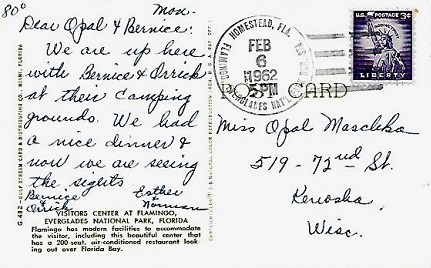 80°
Mon.
Dear Opal & Bernice:
We are up here
with Bernice & Orrick
at their camping
grounds. We had
a nice dinner &
now we are seeing
the sights
Bernice & Orrick
Esther & Norman
VISITORS CENTER AT FLAMINGO,
EVERGLADES NATIONAL PARK, FLORIDA
Flamingo has modern facilities to accommodate
the visitor, including this beautiful center that
has a 200 seat, air-conditioned restaurant look-
ing out over Florida Bay.
HOMESTEAD, FLA.
FEB
6
1962
5 PM
U.S. POSTAGE 3¢
LIBERTY
POST CARD
Miss Opal Maschka
519 - 72nd St.
Kenosha
Wisc.